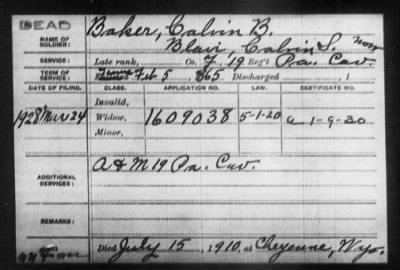 DEAD
NAME OF SOLDIER: Baker, Calvin B.
Blair, Calvin S. now
SERVICE: Late rank, Co. F, 19 Reg't Pa. Cav.
TERM OF SERVICE: Feb 5, 1865 Discharged , 1
DATE OF FILING. CLASS. APPLICATION NO. LAW. CERTIFICATE NO.
Invalid,
1928 Mar 24 Widow, 1609038 5-1-20 a 1-9-30
Minor,
ADDITIONAL SERVICES: A & M 19 Pa. Cav.
REMARKS:
Died July 15, 1910, at Cheyenne, Wyo.